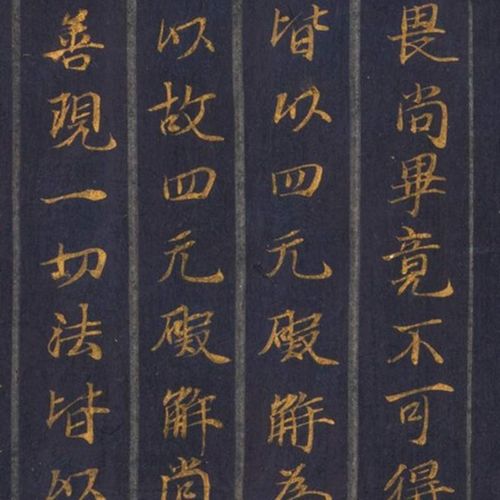 畏尚畢竟不可得
皆以四无礙解為
以故四无礙解尚
善現一切法皆以